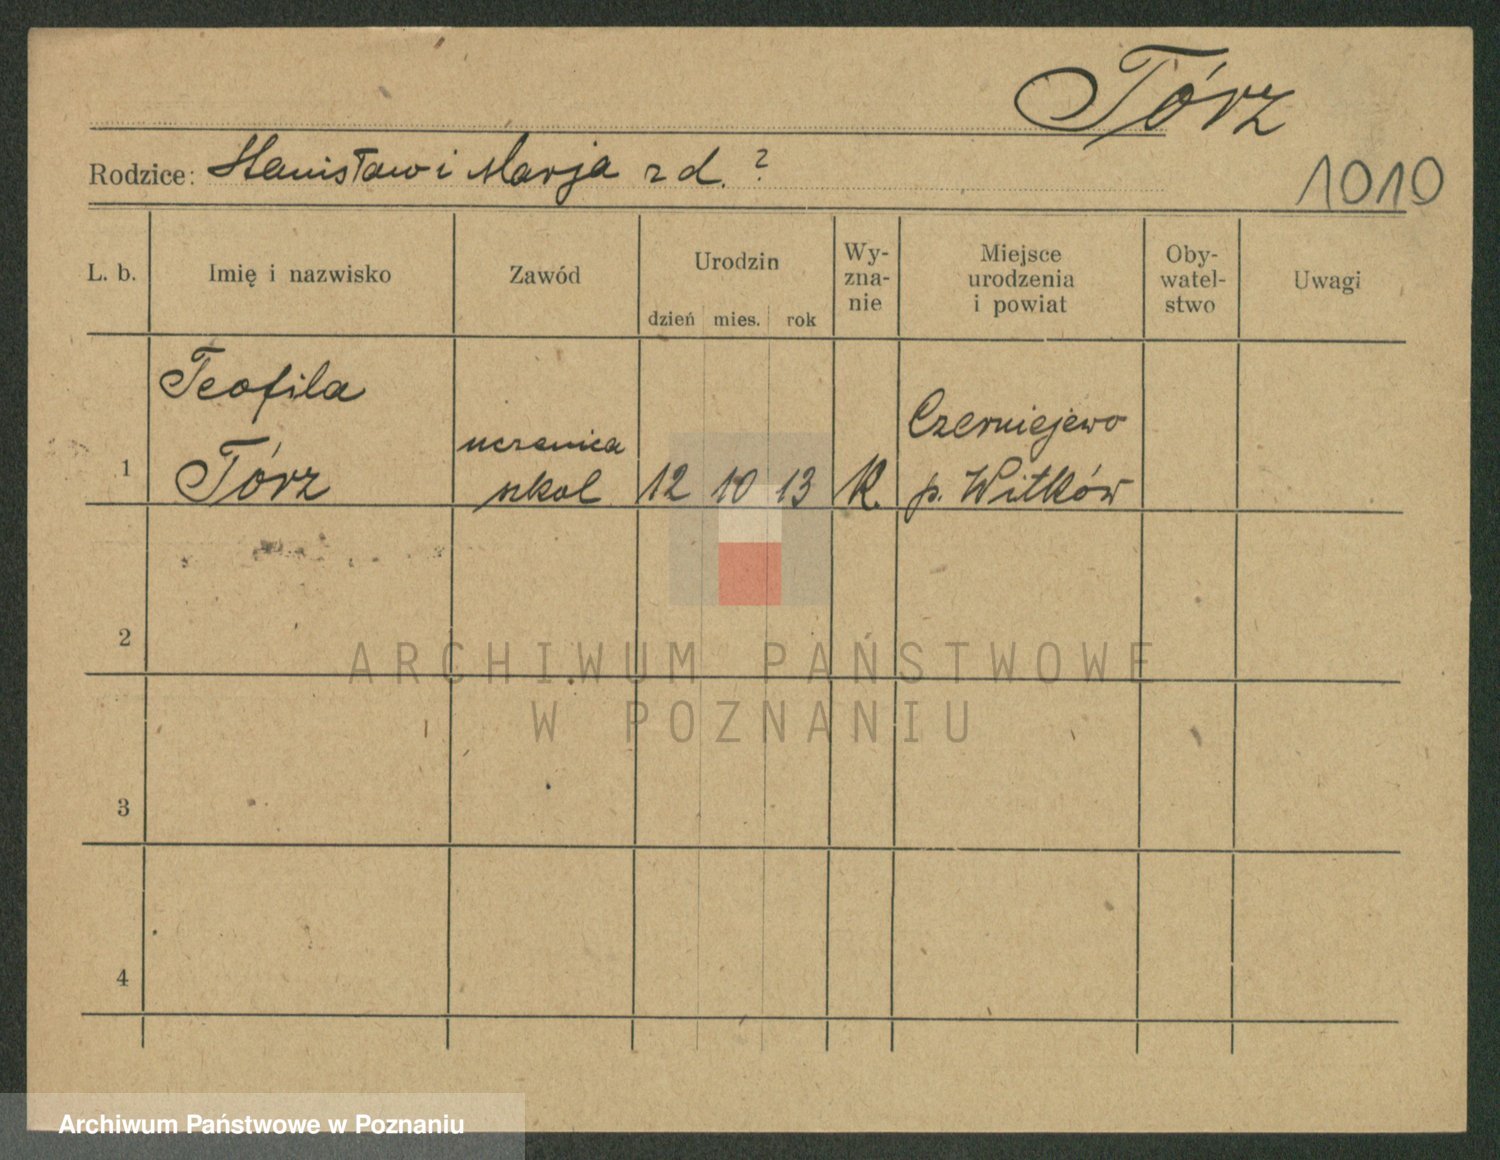 Tórz
Rodzice: Stanisław i Marja z d. ?
1010
L. b. Imię i nazwisko Zawód Urodzin dzień mies. rok Wy-zna-nie Miejsce urodzenia i powiat Oby-watel-stwo Uwagi
Teofila
Czerniejewo
uczenica
1 Tórz szkol. 12 10 13 K. p. Witków
2
ARCHIWUM PAŃSTWOWE
W POZNANIU
3
4
Archiwum Państwowe w Poznaniu